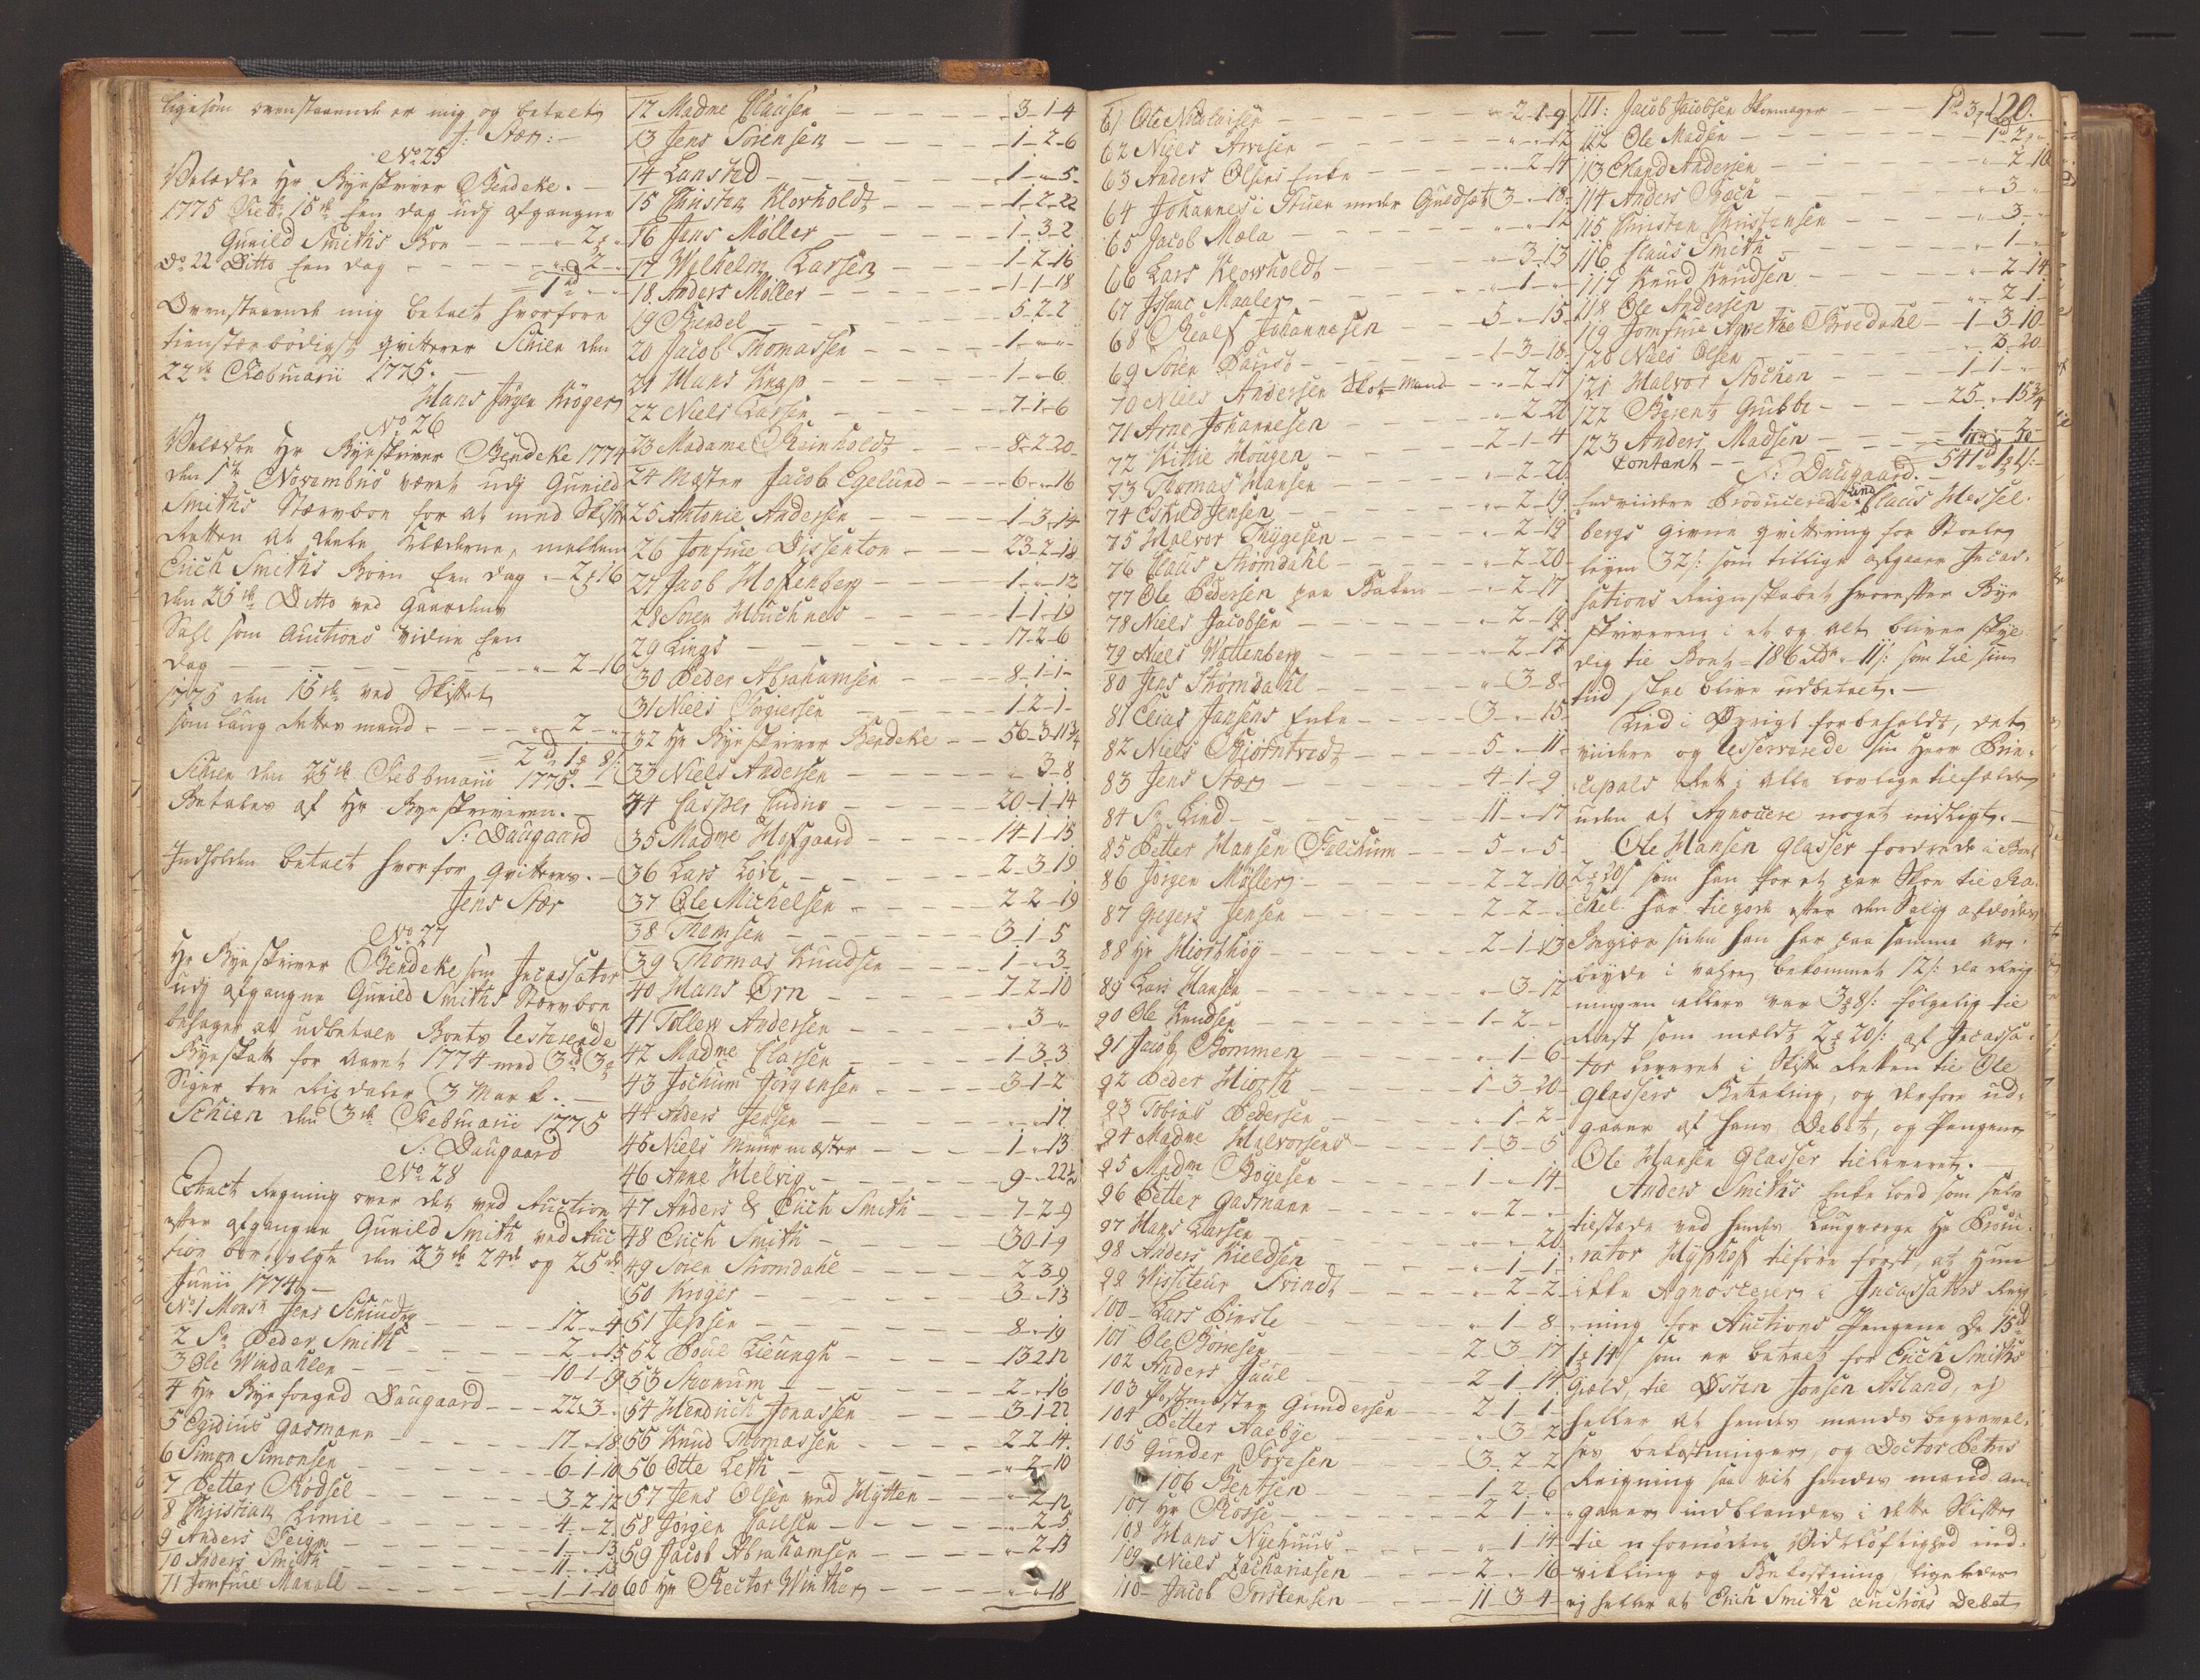 ligesom ovenstaaende er mig og betalt
J: Stær:
No 25
Velædle Hr Byeskriver Bendeke.
1775 Febr: 15de Een dag udj afgangne
Gunild Smiths Boe - 2 -
Do 22 Ditto Een dag - 2 -
1rd
Ovenstaaende mig betalt hvorfore
tienstærbødigst qvitterer Schien den
22de Februarii 1775.
Hans Jørgen Krøger
No 26
Velædle Hr Byeskriver Bendeke 1774
den 1te Novembris været udj Gunild
Smiths Stærvboe for at med Skifte
Retten at deele Klæderne, mellem
Erich Smiths Børn Een dag - 2 16
den 25de Ditto ved Gaardens
Sahl som Auctions Vidne Een
dag - 2 - 16
1775 den 15de ved Skiftet
som Laug Rettes mand - 2 -
2rd 1 8
Schien den 25de Februarii 1775.
Betales af Hr Byeskriveren.
S: Daugaard
Indholden betalt hvorfor qvitteres.
Jens Stær
No 27
Hr Byeskriver Bendeke som Incassator
udj afgangne Gunild Smiths Stærvboe
behager at udbetale Boets resterende
Byeskatt for Aaret 1774 med 3rd 3
Siger tre Rixdaler 3 Mark.
Schien den 3de Februarii 1775
S: Daugaard
No 28
Extract Regning over det ved Auction
efter afgangne Gunild Smith ved Auc
tion bortsolgte den 23de 24de og 25de
Junii 1774
No 1 Monsr Jens Schindn - 12 - 4
2 Sr Peder Smith - 2 - 15
3 Ole Windahlen - 10-1-19
4 Hr Byefoged Daugaard - 22-3-
5 Egidius Gasmann - 17 - 18
6 Simon Simonsen - 6-1-10
7 Petter Rødsel - 3-2-12
8 Christian Limie - 4 - 2
9 Anders Feign - 1 - 13
10 Anders Smith - 11 - 13
11 Jomfrue Marall - 1-1-10
12 Madme Clausen - 3-1-4
13 Jens Sørensen - 1-2-6
14 Lansted - 1 - 5
15 Christen Klovholdt - 1-2-22
16 Jens Møller - 1-3-2
17 Wilhelm Larsen - 1-2-16
18 Anders Møller - 1-1-18
19 Bendel - 5-2-2
20 Jacob Thomassen - 1 - -
21 Hans Knap - 1 - 6
22 Niels Larsen - 7-1-6
23 Madame Reinholdt - 8-2-20
24 Mæster Jacob Egelund - 6 - 16
25 Antonie Andersen - 1-3-14
26 Jomfrue Dissenton - 23-2-18
27 Jacob Hoffenberg - 1 - 12
28 Søren Houchnes - 1-1-19
29 Lings - 17-2-6
30 Peder Abrahamsen - 8-1-1
31 Niels Torgiersen - 1-2-1
32 Hr Byeskriver Bendeke - 56-3-11 3/4
33 Niels Andersen - 3-8
34 Casper Ludvig - 20-1-14
35 Madme Hofgaard - 14-1-15
36 Lars Løve - 2-3-19
37 Ole Michelsen - 2-2-19
38 Thomsen - 3-1-5
39 Thomas Knudsen - 1 - 3
40 Hans Ørn - 7-2-10
41 Tollew Andersen - 3 -
42 Madme Classen - 1-3-3
43 Jochum Jørgensen - 3-1-2
44 Anders Jensen - 17
45 Niels Muurmæster - 1 - 13
46 Anne Helvig - 9 - 22 1/2
47 Anders & Erich Smith - 7-2-9
48 Erich Smith - 30-1-9
49 Søren Strømdahl - 2-3-9
50 Krøger - 3 - 13
51 Jepsen - 8 - 19
52 Poul Lieungh - 13 2 12
53 Thorum - 2 - 16
54 Hendrich Jonassen - 3-1-22
55 Knud Thomassen - 2-2-14
56 Otte Leth - 2-10
57 Jens Olsen ved Hytten - 2-12
58 Jørgen Paulsen - 2-5
59 Jacob Abrahamsen - 2-13
60 Hr Rector Winther - 18
61 Ole Nicolaisen - 2-1-9
62 Niels Arvesen - 12
63 Anders Olsens Enke - 2-14
64 Johannes i Stuen under Guldsæt 3 - 18
65 Jacob Mæla - 12
66 Lars Klovholdt - 3-13
67 Jsaac Maaler - 1 -
68 Realf Johannesen - 5 - 15
69 Sören Paus - 1-3-18
70 Niels Andersen Skotmand - 2-17
71 Arne Johannesen - 2-20
72 Kittie Hougen - 2-1-4
73 Thomas Hansen - 2-20
74 Eskild Jensen - 2-19
75 Halvor Thygesen - 2-19
76 Claus Strømdahl - 2-20
77 Ole Pedersen paa Bakken - 2-17
78 Niels Jacobsen - 2-19
79 Niels Wattenberg - 2-17
80 Jens Strømdahl - 3-8
81 Elias Jansens Enke - 3 - 15
82 Niels Biørntvedt - 5 - 11
83 Jens Stær - 4-1-9
84 Sr Lind - 11 - 17
85 Petter Hansen Falchum - 5 - 5
86 Jørgen Møller - 2-2-10
87 Gregers Jensen - 2-2-
88 Hr Hiorthøy - 2-1-13
89 Lars Hansen - 3-12
90 Ole Knudsen - 1-2-
91 Jacob Bommen - 1-6
92 Peder Hiorth - 1-3-20
93 Tobias Pedersen - 1-2
94 Madme Halvorsens - 1-3-5
95 Madme Bøyesen - 1 - 14
96 Petter Gasmann - 2 -
97 Hans Larsen - 20
98 Anders Kieldsen - 1-1
99 Wisiteur Svindt - 2-2
100 Lars Pinsle - 1-8
101 Ole Børresen - 2 3 17
102 Anders Juul - 2-1-14
103 Postmester Gundersen - 2-1-1
104 Petter Aaebye - 3 2
105 Gunder Toresen - 3 2 2
106 Bentsen - 1 2 6
107 Hr Rosse - 2 1 -
108 Hans Nyehuus - 1 14
109 Niels Zachariasen - 2 - 16
110 Jacob Torstensen - 11 3 4
120.
111: Jacob Jacobsen Skomager - 1rd 3
112 Ole Madsen - 1rd 2
113 Erland Andersen - 2-10
114 Anders Bøch - 3 -
115 Christen Christensen - 3 -
116 Claus Smith - 1 -
117 Knud Knudsen - 2-14
118 Ole Andersen - 2-1
119 Jomfrue Agnethe Broedahl - 1-3-10
120 Niels Olsen - 20
121 Halvor Stochen - 1-1-
122 Berent Grubbe - 25 - 15 3/4
123 Anders Madsen - 1 - 2
Contant -
S: Daugaard. 541rd 1
Endvidere Producerede Lind Claus Hessel-
bergs givne qvittering for Stoele
leyen 32 s: som tillige afgaaer Incas-
sations Reignskabet hvorefter Bye
skriveren i et og alt bliver skyl
dig til Boet 186 Rd 11 s: som til sin
tiid skal blive udbetalt.
Lind i Øvrigt forbeholdt, det
videre og resserverede sin Herr Prin-
cipals Ret i alle lovlige tilfælde
uden at Agnoscere noget urigtigt.
Ole Hansen Glasser fordrede i Boet
2 20 s som han for et par Skoe til Ra-
chel har tilgode efter den Salig afdødes
Begiær siden han har paa samme ar-
beyde i vahre bekommet 12 s: da Reig
ningen ellers var 3 8 s: følgelig til
Rest som meldt 2 20 s: af Incassa-
tor leveret i Skifte Retten til Ole
Glassers Betaling, og derfore ud-
gaaer af hans Debet, og Pengene
Ole Hansen Glasser tilleveret.
Anders Smiths Enke lod som selv
tilstæde ved hendes Laugværge Hr Procu-
rator Wypthoff tilføre først, at hun
ikke Agnoscerer i Incassators Reig
ning for Auctions Pengene de 15rd
1 14 s som er betalt for Erich Smiths
Gield, til Østen Jonsen Aaland, ej
heller at hendes mands begravel-
ses bekostninger, og Doctor Peters
Reigning saa vit hendes mand an-
gaaer indblandes i dette Skifte
til u fornøden Vidtløftighed ind-
vikling og Bekostning, ligeledes
ej heller at Erich Smiths auctions Debet